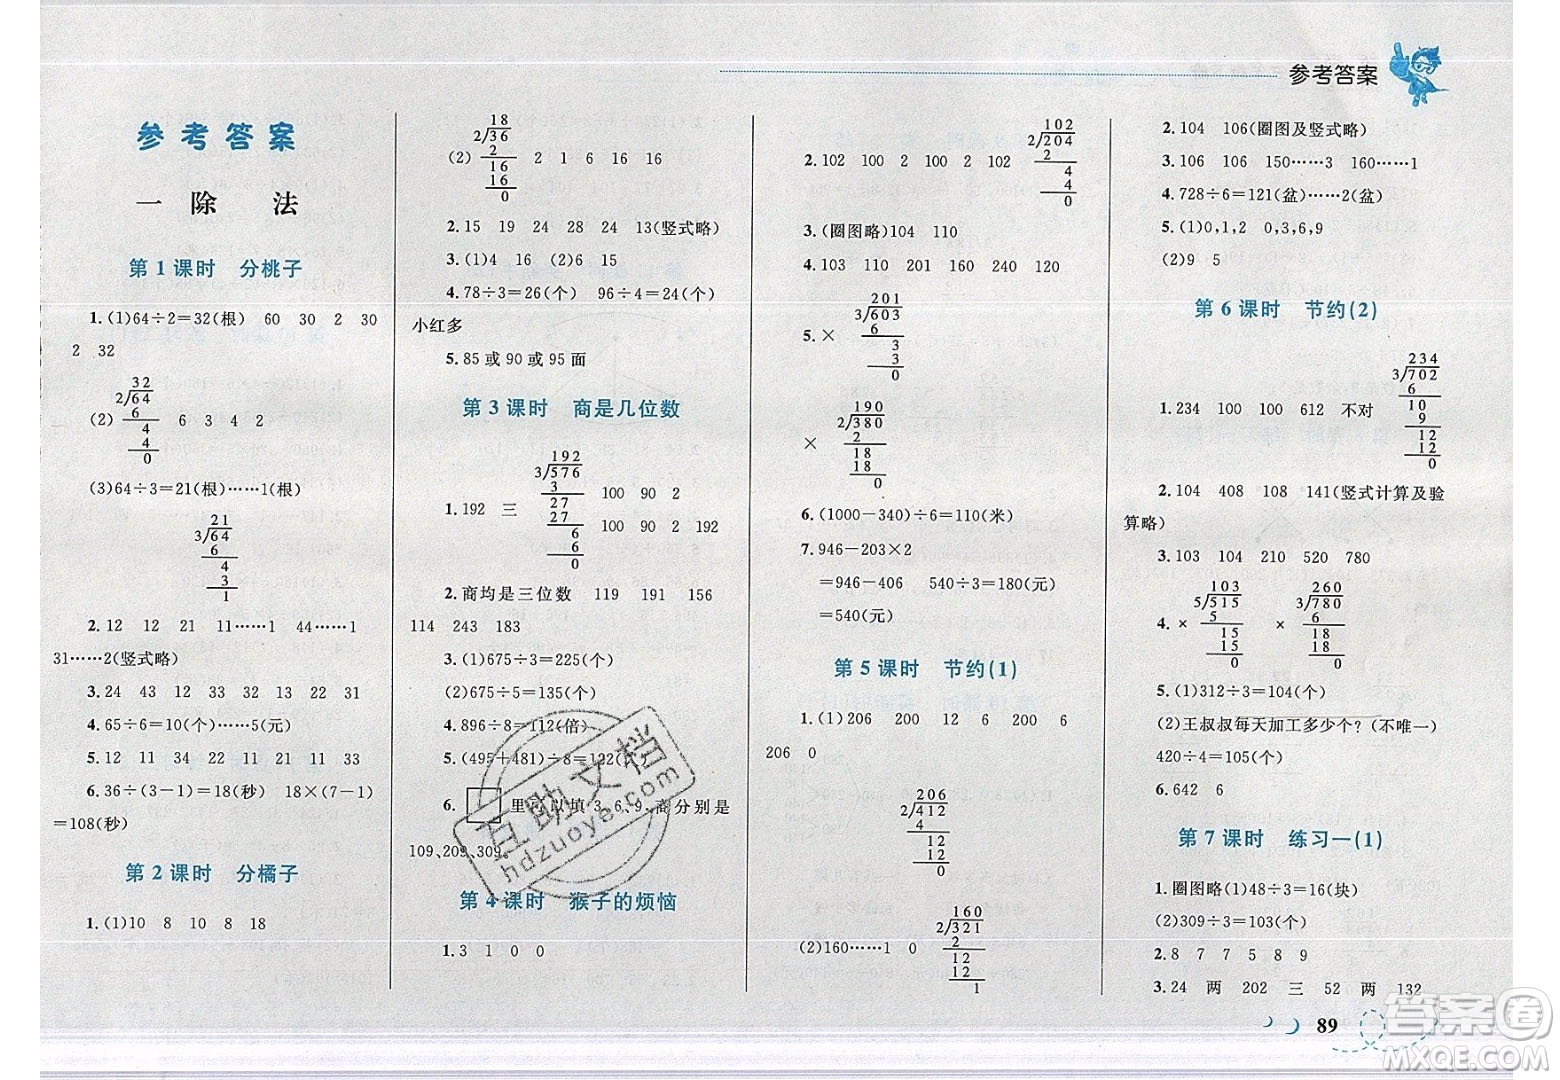 参考答案
参考答案
一 除 法
第 1 课时 分桃子
1. (1)64÷2=32(根) 60 30 2 30
2 32
32
2√64
6
(2) 6 3 4 2
4
4
0
(3)64÷3=21(根)……1(根)
21
3√64
6
4
3
1
2. 12 12 21 11……1 44……1
31……2(竖式略)
3. 24 43 12 33 32 13 22 31
4. 65÷6=10(个)……5(元)
5. 12 11 34 22 21 11 33
6. 36÷(3-1)=18(秒) 18×(7-1)
=108(秒)
第 2 课时 分橘子
1. (1)10 8 10 8 18
18
2√36
2
(2) 2 1 6 16 16
16
16
0
2. 15 19 24 28 24 13(竖式略)
3. (1)4 16 (2)6 15
4. 78÷3=26(个) 96÷4=24(个)
小红多
5. 85 或 90 或 95 面
第 3 课时 商是几位数
192
3√576
3 100 90 2
1. 192 三 27
27 100 90 2 192
6
6
0
2. 商均是三位数 119 191 156
114 243 183
3. (1)675÷3=225(个)
(2)675÷5=135(个)
4. 896÷8=112(倍)
5. (495+481)÷8=122(个)
6. 里可以填 3、6、9,商分别是
109、209、309。
第 4 课时 猴子的烦恼
1. 3 1 0 0
102
2√204
2. 102 100 2 100 2 102 2
4
4
0
3. (圈图略)104 110
4. 103 110 201 160 240 120
201
3√603
5. × 6
3
3
0
190
2√380
× 2
18
18
0
6. (1000-340)÷6=110(米)
7. 946-203×2
=946-406 540÷3=180(元)
=540(元)
第 5 课时 节约(1)
1. (1)206 200 12 6 200 6
206 0
206
2√412
4
12
12
0
160
2√321
(2)160……1 0 2
12
12
1
2. 104 106(圈图及竖式略)
3. 106 106 150……3 160……1
4. 728÷6=121(盆)……2(盆)
5. (1)0,1,2 0,3,6,9
(2)9 5
第 6 课时 节约(2)
234
3√702
6
1. 234 100 100 612 不对 10
9
12
12
0
2. 104 408 108 141(竖式计算及验
算略)
3. 103 104 210 520 780
103 260
5√515 3√780
4. × 5 × 6
15 18
15 18
0 0
5. (1)312÷3=104(个)
(2)王叔叔每天加工多少个?(不唯一)
420÷4=105(个)
6. 642 6
第 7 课时 练习一(1)
1. 圈图略(1)48÷3=16(块)
(2)309÷3=103(个)
2. 8 7 7 5 8 9
3. 24 两 202 三 52 两 132
89
互助文档
hdzuoye.com
答案圈
MXQE.COM